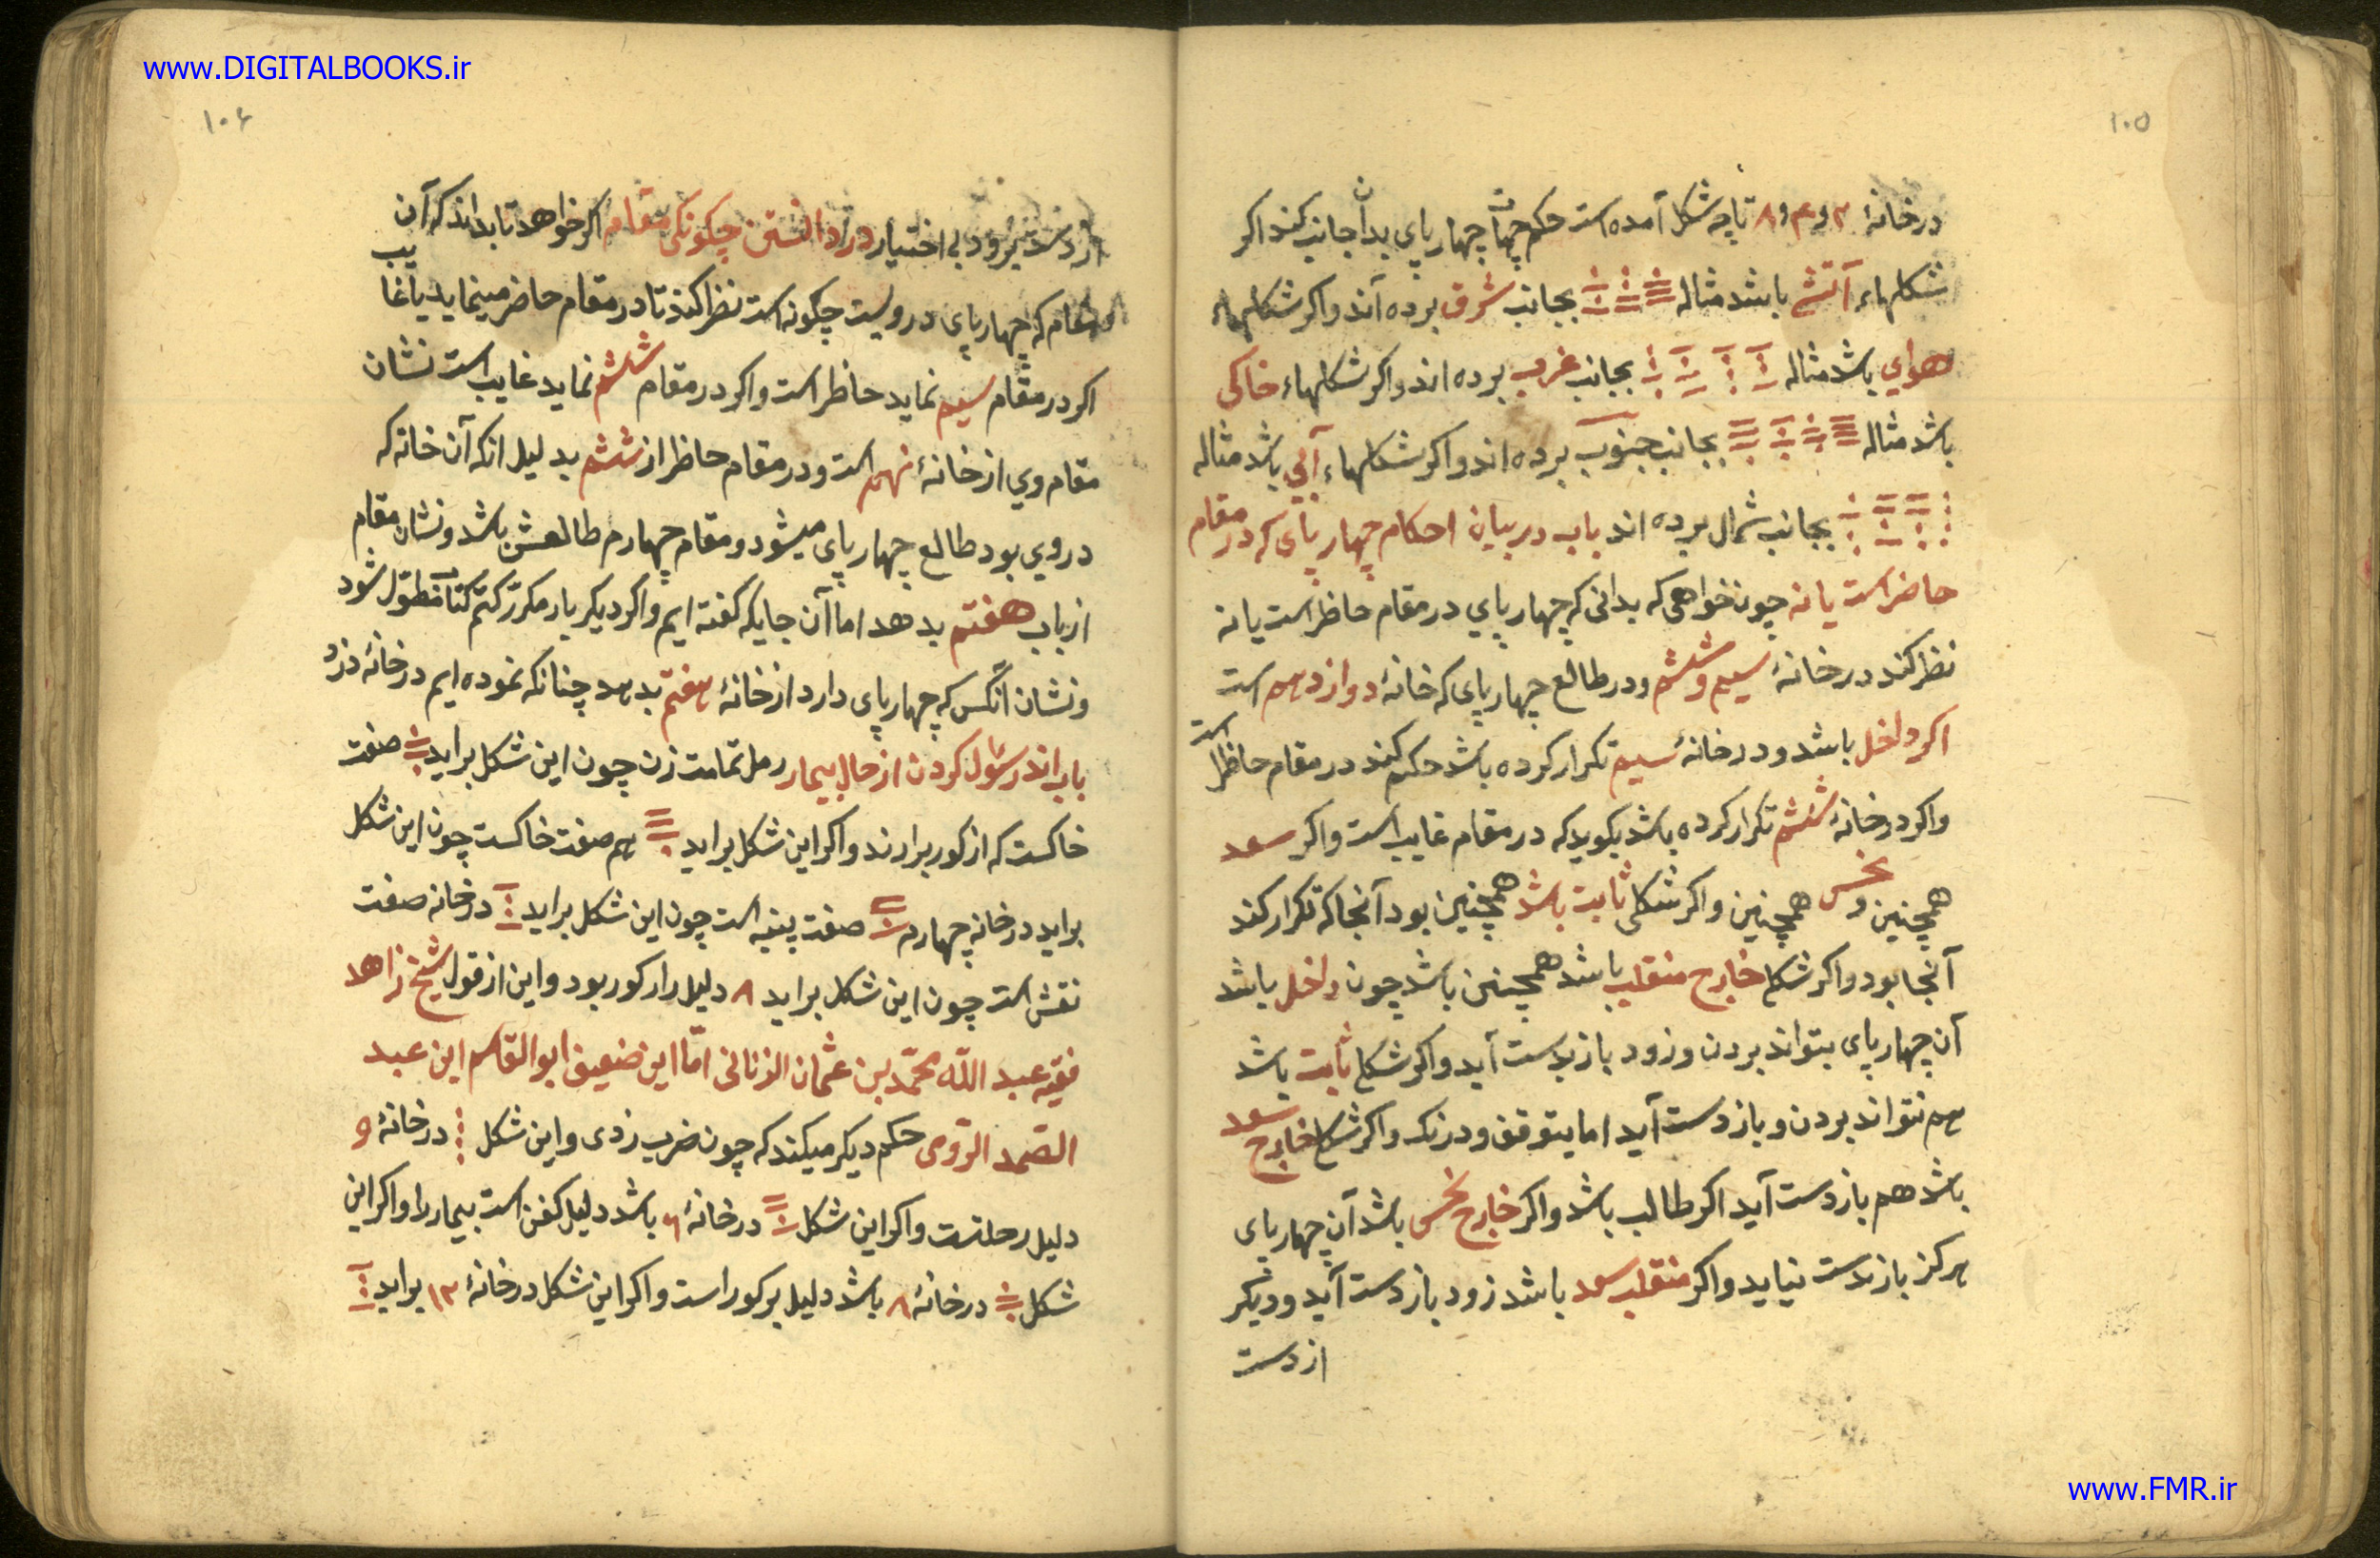 www.DIGITALBOOKS.ir
۱۰۵
در خانهٔ ۲ و ۴ و ۸ تا چه شکل آمده است حکم چهار پاي بدان جانب کند اکر
شکلهاء آتشي باشد مثاله بجانب شرق برده آند واکر شکلهاء
هواي باشد مثاله بجانب غرب برده اند واکر شکلهاء خاکی
باشد مثاله بجانب جنوب برده اند واکر شکلهاء آبي باشد مثاله
بجانب شمال برده اند باب در بیان احکام چهار پاي که در مقام
حاضر است یا نه چون خواهي که بدانی که چهار پاي در مقام حاظر است یا نه
نظر کند در خانهٔ سیم و ششم و در طالع چهار پاي که خانهٔ دوازدهم است
اکر داخل باشد و در خانهٔ سیم تکرار کرده باشد حکم کند در مقام حاظر است
واکر در خانهٔ ششم تکرار کرده باشد بکوید که در مقام غایب است واکر سعد
همچنین و نحس همچنین واکر شکلی ثابت باشد همچنین بود آنجا که تکرار کند
آنجا بود واکر شکل خارج منقلب باشد همچنین باشد چون داخل باشد
آن چهار پاي بتواند بردن و زود باز بدست آید واکر شکل ثابت باشد
هم نتواند بردن و باز دست آید اما بتوقف و درنک واکر شکل خارج سعد
باشد هم باز دست آید اکر طالب باشد واکر خارج نحس باشد آن چهار پاي
هرکز باز بدست نیاید واکر منقلب سعد باشد زود باز دست آید و دیکر
از دست
۱۰۶
از دست برود بی اختیار در دانستن چکونکی مقام اکر خواهد تا بداند که آن
مقام که چهار پاي در ویست چکونه است نظر کند تا در مقام حاضر مینماید یا غایب
اکر در مقام سیم نماید حاظر است واکر در مقام ششم نماید غایب است نشان
مقام وي از خانهٔ نهم است و در مقام حاظر از ششم بدلیل انکه آن خانه که
در وي بود طالع چهار پاي میشود و مقام چهارم طالعش باشد و نشان مقام
از باب هفتم بدهد اما آن جایکه کفته ایم واکر دیکر بار مکرّر کنم کتاب مطوّل شود
و نشان آنکس که چهار پاي دارد از خانهٔ هفتم بدهد چنانکه نموده ایم در خانهٔ دزد
باب اندر سئول کردن از حال بیمار رمل تمامت زن چون این شکل براید صفت
خاکست که از کور برارند واکر این شکل براید هم صفت خاکست چون این شکل
براید در خانه چهارم صفت پنبه است چون این شکل براید در خانه صفت
نقش است چون این شکل براید ۸ دلیل رار کور بود و این از قول شیخ زاهد
فقیه عبد اللّه محمّد بن عثمان الزناتی امّا این ضعیف ابو القاسم ابن عبد
الصّمد الرّومی حکم دیکر میکند که چون ضرب زدی و این شکل در خانهٔ و
دلیل رحلتست واکر این شکل در خانهٔ ۶ باشد دلیل کفن است بیمار را واکر این
شکل در خانهٔ ۸ باشد دلیل بر کور است واکر این شکل در خانهٔ ۱۲ براید
www.FMR.ir